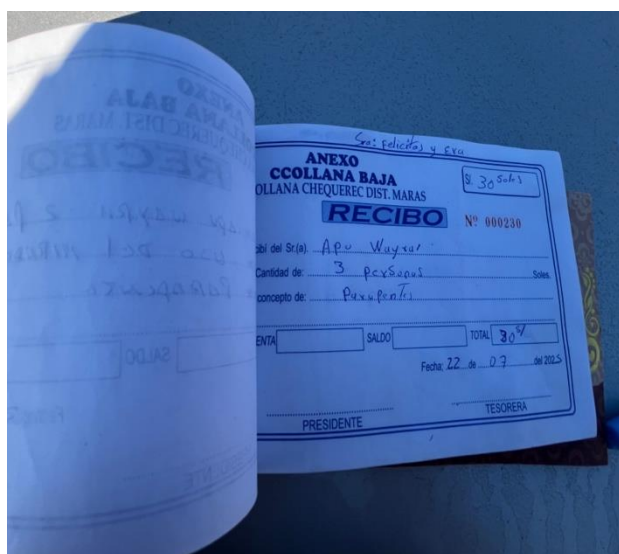 Sra: Felicitas y Eva
ANEXO
CCOLLANA BAJA
OLLANA CHEQUEREC DIST. MARAS
S/. 30 Soles
RECIBO
Nº 000230
cibí del Sr.(a). Apu Wayra
Cantidad de: 3 personas Soles
concepto de: Parapentes
ENTA SALDO TOTAL 30 S/
Fecha: 22 de 07 del 2025
PRESIDENTE
TESORERA